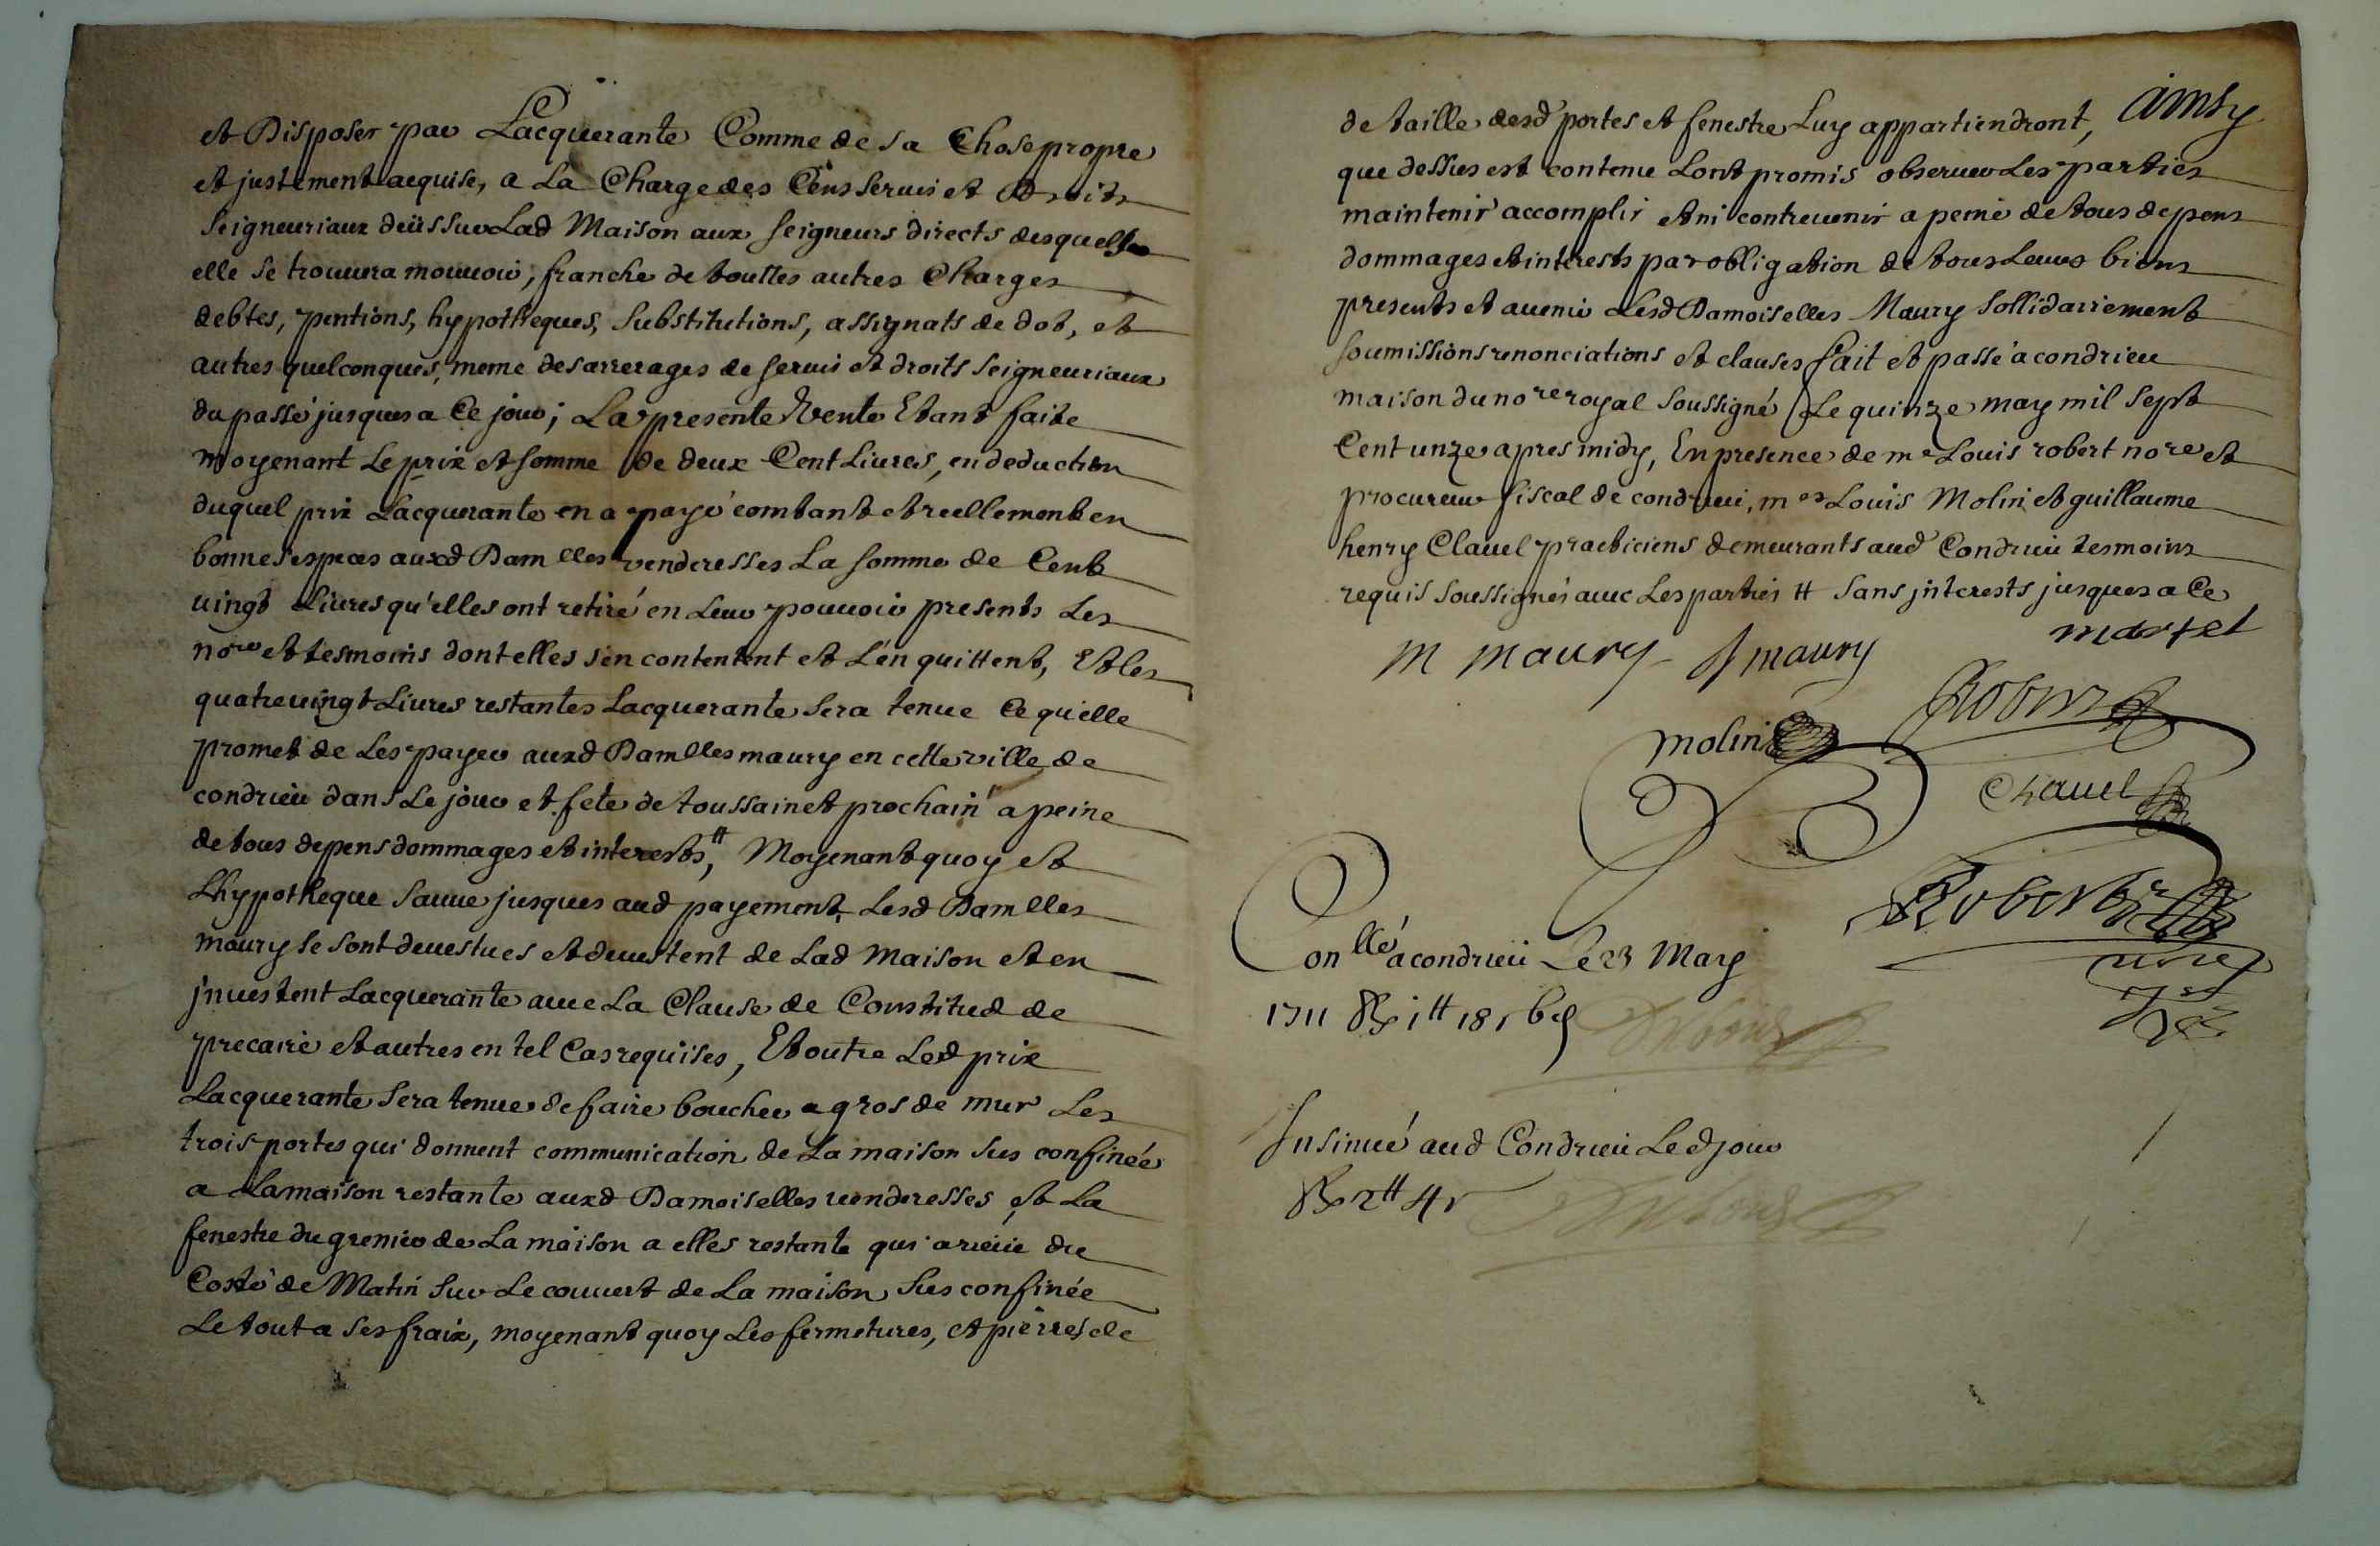 et Disposer par Lacquerante Comme de sa Chose propre
et justement acquise, a La Charge des Cens servis et Droits
seigneuriaux deüs sur Lad Maison aux seigneurs directs desquels
elle se trouvera mouvoir, franche de touttes autres Charges
debtes, pentions, hypotheques, substitutions, assignats de dot, et
autres quelconques, meme des arrerages de servis et droits seigneuriaux
du passé jusques a Ce jour; La presente Vente Etant faite
moyenant Le prix et somme de deux Cent Livres, en deduction
duquel prix Lacquerante en a payé comtant et reellement en
bonnes especes auxd Damlles venderesses La somme de Cent
vingt Livres qu'elles ont retiré en Leur pouvoir presents Les
nore et tesmoins dont elles s'en contentent et L'en quittent, Et les
quatre vingt Livres restantes Lacquerante sera tenue Ce qu'elle
promet de Les payer auxd Damlles maury en cette ville de
condrieü dans Le jour et fete de toussainct prochain a peine
de tous depens dommages et interests tt, Moyenant quoy et
Lhypotheque sauve jusques aud payement, Lesd Damlles
maury se sont devestues et devestent de Lad Maison et en
jnvestent Lacquerante avec La Clause de Constitud de
precaire et autres en tel Cas requises, Et outre Led prix
Lacquerante sera tenue de faire boucher a gros de mur Les
trois portes qui donnent communication de La maison sus confinée
a La maison restante auxd Damoiselles venderesses et La
fenestre du grenier de La maison a elles restante qui a veüe du
Costé de Matin sur Le couvert de La maison sus confinée
Le tout a ses fraix, moyenant quoy Les fermetures, et pierres de
de taille desd portes et fenestre Luy appartiendront, Ainsy
que dessus est contenu Lont promis observer Les parties
maintenir accomplir et ni contrevenir a peine de tous depens
dommages et interests par obligation de tous Leurs biens
presents et avenir Lesd Damoiselles Maury sollidairement
soumissions renonciations et clauses fait et passé a condrieu
maison du nore royal soussigné Le quinze may mil sept
Cent unze apres midy, En presence de me Louis robert nore et
procureur fiscal de condrieü, mes Louis Molin et guillaume
henry Clavel practiciens demeurants aud Condrieü tesmoins
requis soussignés avec Les parties tt sans jnterests jusques a Ce
martel
m maury maury
Molin
Clavel
Robert
Conllé a condrieü Le 23 May
1711 tt 18 s 6 d
Insinué aud Condrieü Led jour
2 tt 4 s